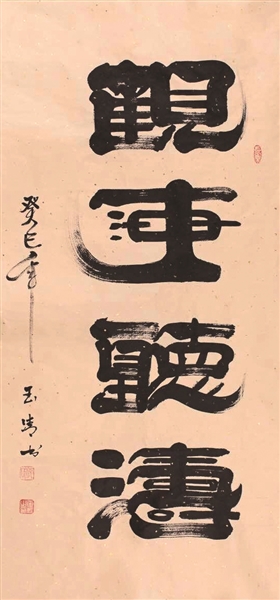 觀海聽濤
癸巳年
玉清书